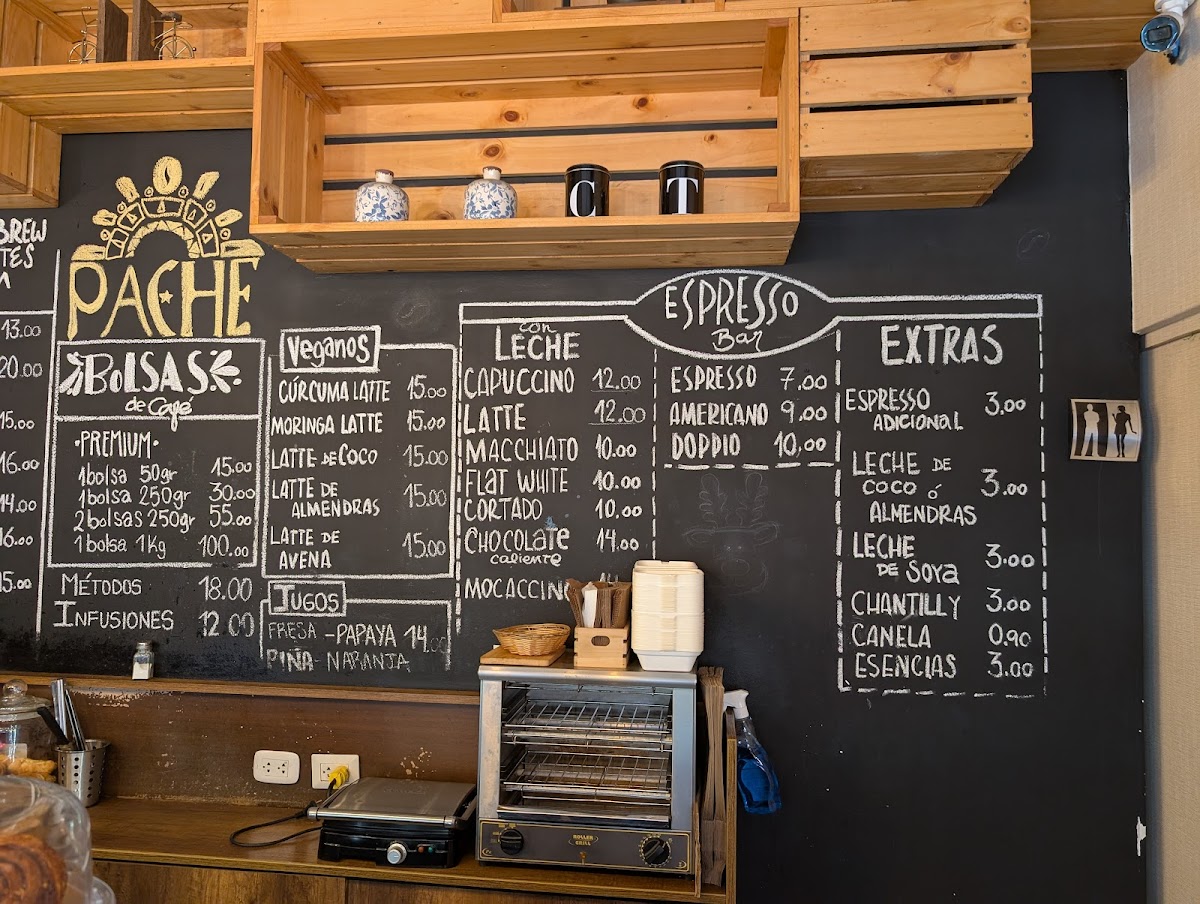 BREW
TES
13.00
20.00
15.00
16.00
14.00
16.00
15.00
PACHE
BOLSAS
de Café
·PREMIUM·
1 bolsa 50gr 15.00
1 bolsa 250gr 30.00
2 bolsas 250gr 55.00
1 bolsa 1 kg 100.00
MÉTODOS 18.00
INFUSIONES 12.00
Veganos
CÚRCUMA LATTE 15.00
MORINGA LATTE 15.00
LATTE DE COCO 15.00
LATTE DE
ALMENDRAS 15.00
LATTE DE
AVENA 15.00
JUGOS
FRESA - PAPAYA 14.00
PIÑA - NARANJA
C T
ESPRESSO
Bar
con
LECHE
CAPUCCINO 12.00
LATTE 12.00
MACCHIATO 10.00
FLAT WHITE 10.00
CORTADO 10.00
CHOCOLATE 14.00
caliente
MOCACCINO
ESPRESSO 7.00
AMERICANO 9.00
DOPPIO 10.00
EXTRAS
ESPRESSO 3.00
ADICIONAL
LECHE DE
COCO Ó 3.00
ALMENDRAS
LECHE
DE SOYA 3.00
CHANTILLY 3.00
CANELA 0.90
ESENCIAS 3.00
ROLLER
GRILL